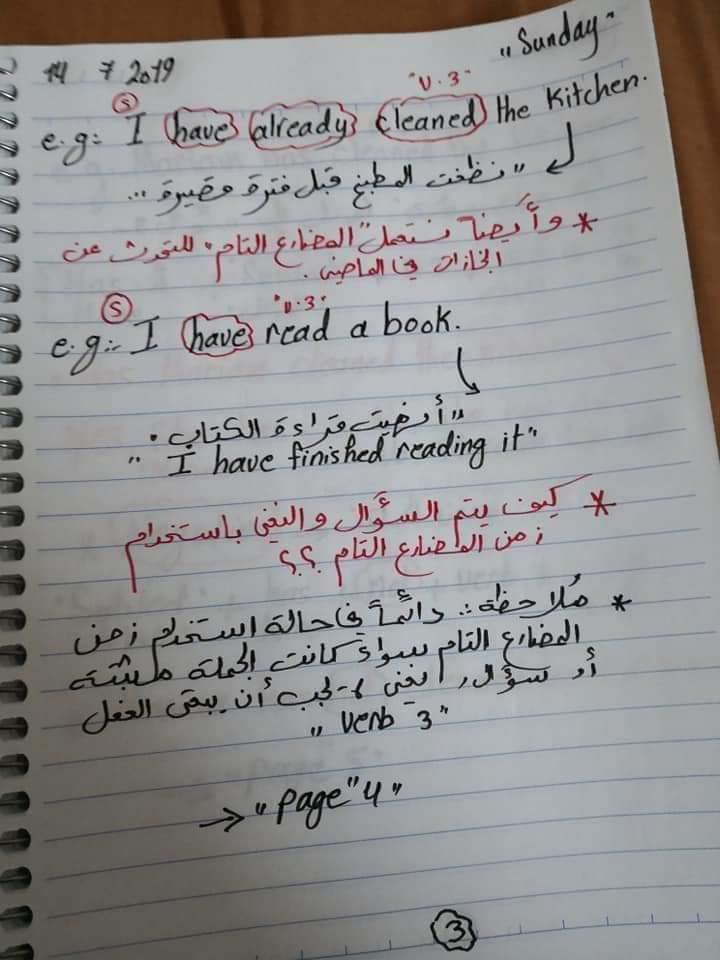 14 7 2019 "Sunday"
(S) "V.3"
e.g:- I have already cleaned the Kitchen.
"نظفت المطبخ قبل فترة قصيرة ...
* وأيضاً نستعمل "المضارع التام" للتحدث عن
انجازات في الماضي.
(S) "V.3"
e.g:- I have read a book.
"أنهيت قراءة الكتاب.
"I have finished reading it"
* كيف يتم السؤال والنفي باستخدام
زمن المضارع التام ؟؟
* مُلاحظة:- دائماً في حالة استخدام زمن
المضارع التام سواء كانت الجملة مثبتة
أو سؤال, نفي يجب أن يبقى الفعل
"verb 3"
→ "page" 4"
3